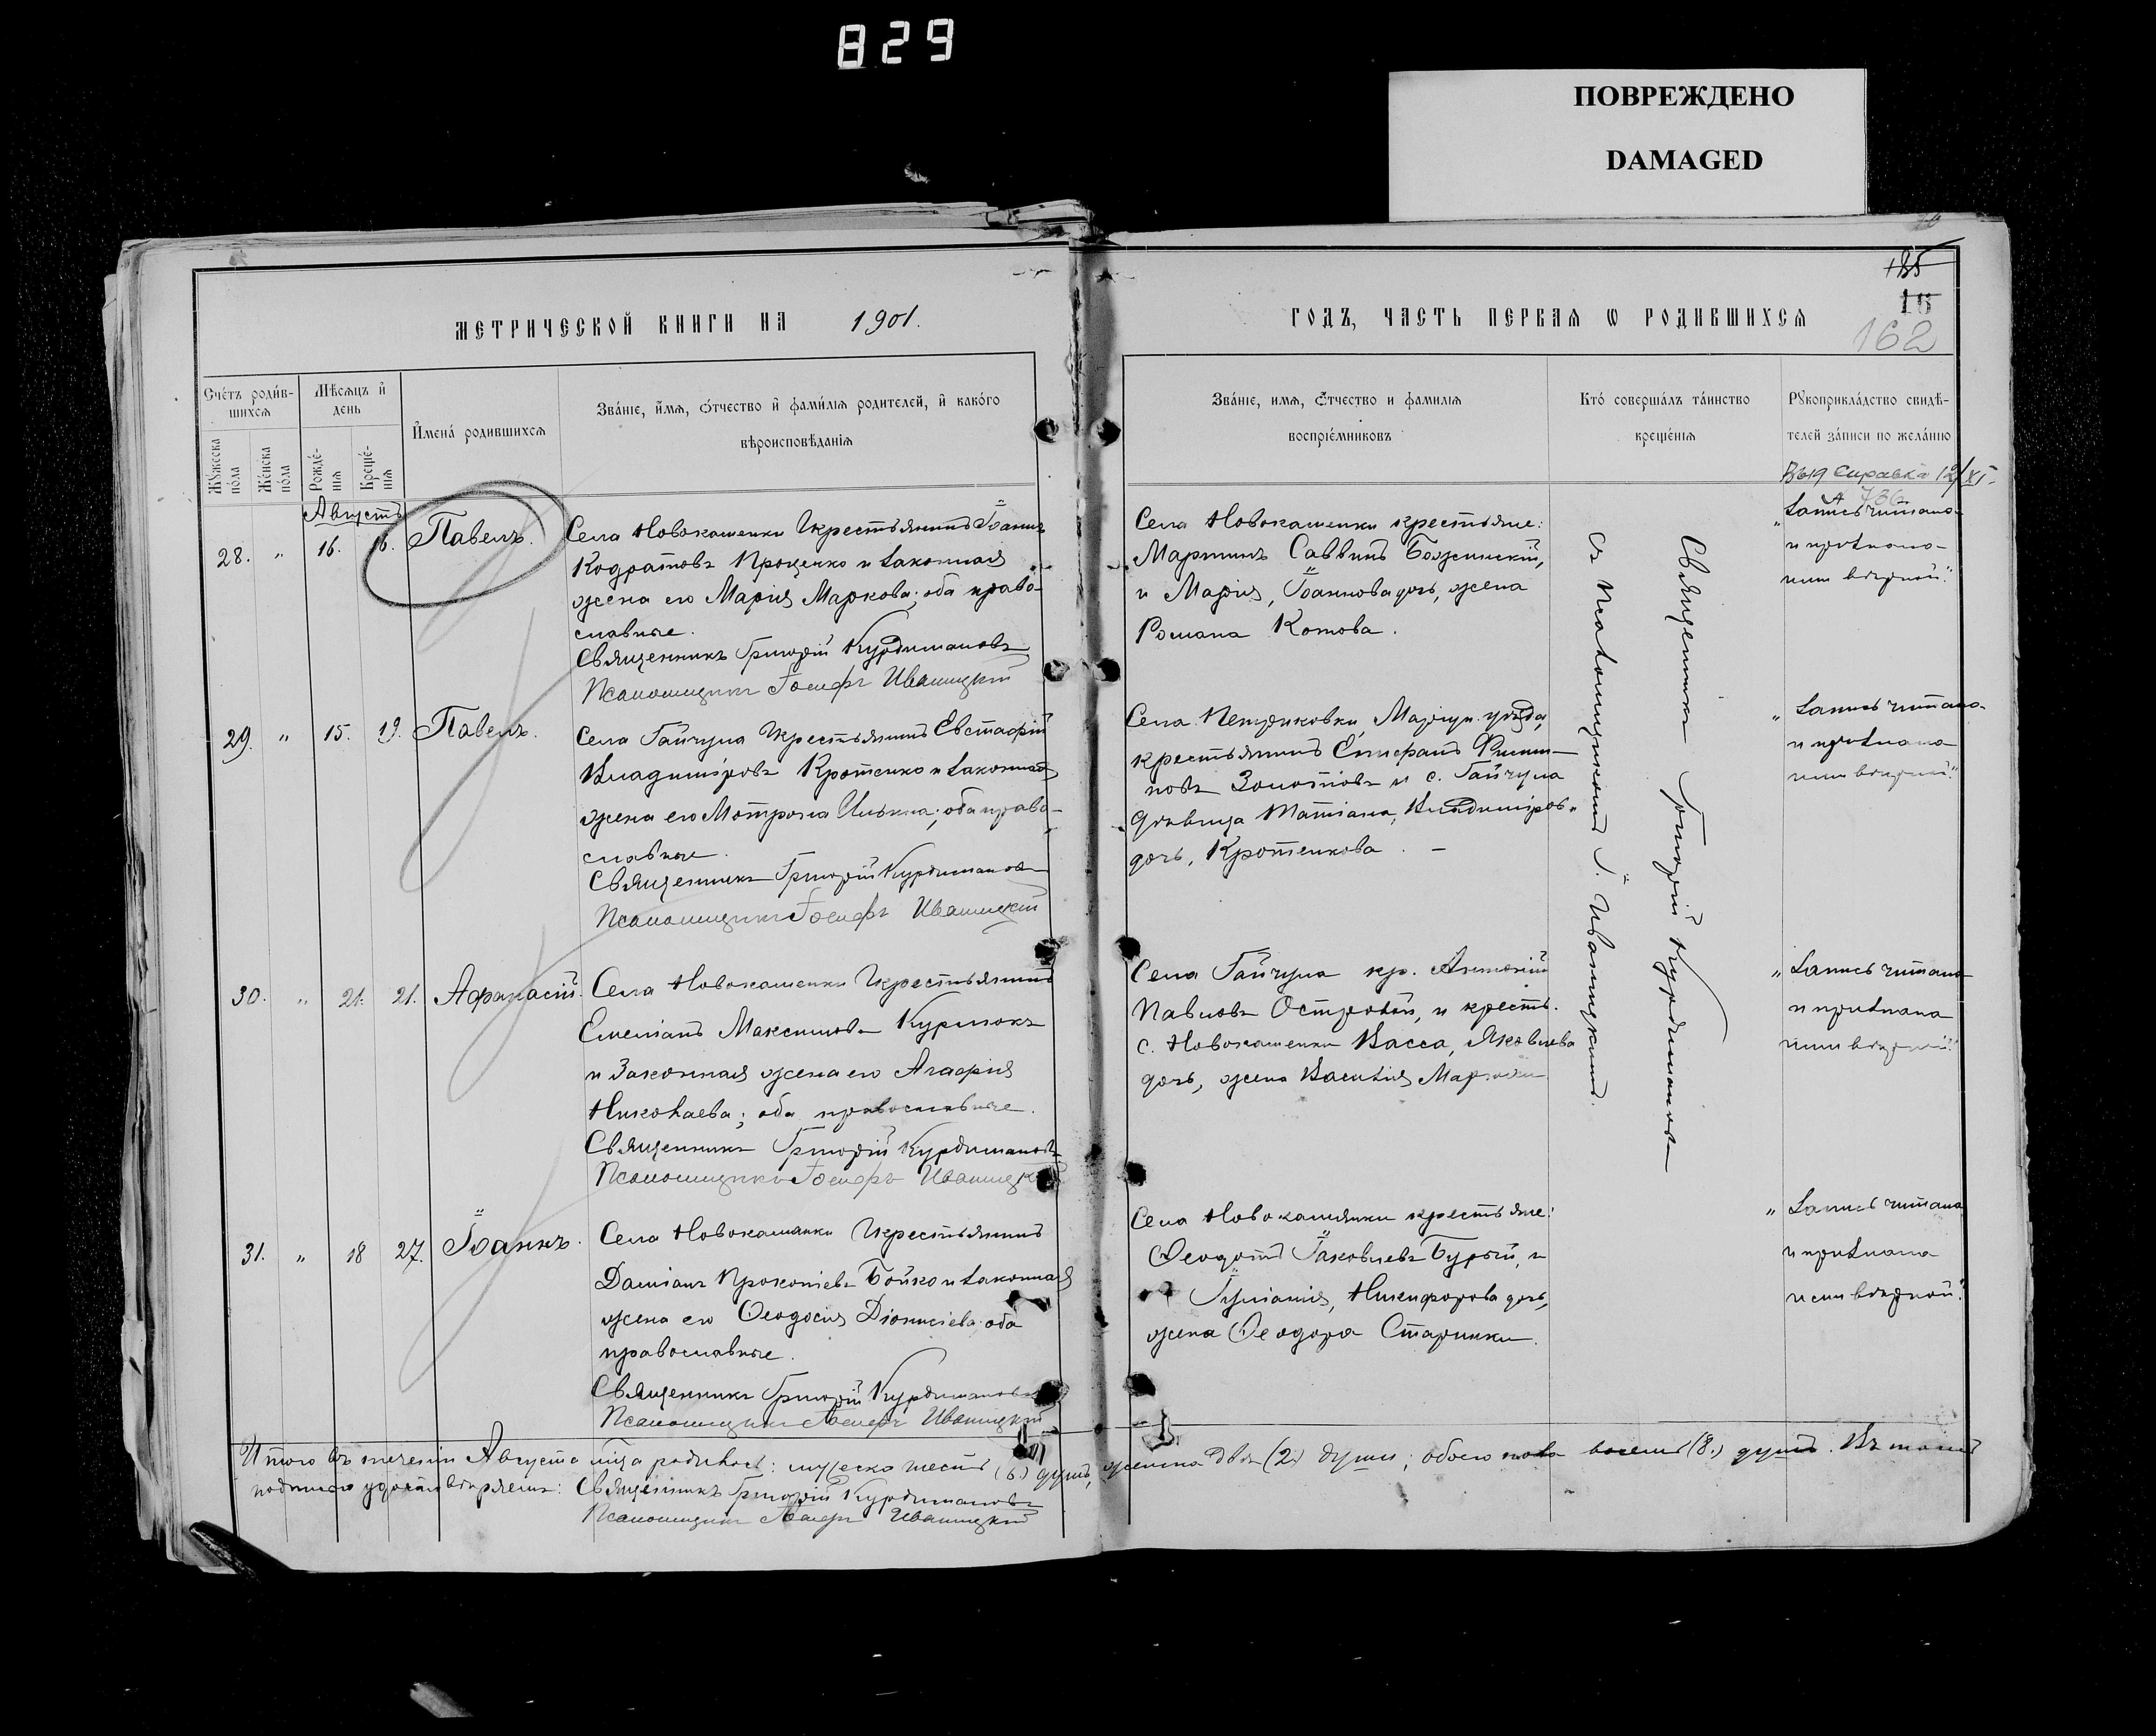 829
ПОВРЕЖДЕНО
DAMAGED
185
16
162
МЕТРИЧЕСКОЙ КНИГИ НА 1901.
ГОДЪ, ЧАСТЬ ПЕРВАЯ Ѡ РОДИВШИХСЯ
Счетъ родив-
шихся
Мѣсяцъ и
день
Мужеска
пола
Женска
пола
Рожде-
нія
Креще-
нія
Имена родившихся
Званіе, имя, отчество и фамилія родителей, и какого
вѣроисповѣданія
Званіе, имя, отчество и фамилія
воспріемниковъ
Кто совершалъ таинство
крещенія
Рукоприкладство свидѣ-
телей записи по желанію
справка 12/XI
Августъ
28. " 16. 16. Павелъ.
Села Новокаменки крестьянинъ Іоаннъ
Кодратовъ Проценко и законная
жена его Марія Маркова; оба право-
славные.
Священникъ Григорій Курдимановъ
Псаломщикъ Іосифъ Иваницкій
Села Новокаменки крестьяне:
Мартинъ Саввинъ Божинскій,
и Марія, Іоаннова дочь, жена
Романа Котова.
Священникъ Григорій Курдимановъ
съ псаломщикомъ І. Иваницкимъ.
"Запись читана
и признана
ими вѣрной".
29. " 15. 19. Павелъ.
Села Гайчула крестьянинъ Евстафій
Владиміровъ Кротенко и законная
жена его Мотрона Ильина; оба право-
славные.
Священникъ Григорій Курдимановъ
Псаломщикъ Іосифъ Иваницкій
Села Петриковки, Маріуп. уѣзда,
крестьянинъ Епифанъ Филип-
повъ Золотовъ и с. Гайчула
дѣвица Татіана, Владимірова
дочь, Кротенкова. –
"Запись читана
и признана
ими вѣрной".
30. " 21. 21. Афанасій.
Села Новокаменки крестьянинъ
Емеліанъ Максимовъ Курилокъ
и законная жена его Агафія
Николаева; оба православные.
Священникъ Григорій Курдимановъ
Псаломщикъ Іосифъ Иваницкій
Села Гайчула кр. Антоній
Павловъ Островой, и крестьян.
с. Новокаменки Васса, Яковлева
дочь, жена Василія
"Запись читана
и признана
ими вѣрной".
31. " 18 27. Іоаннъ.
Села Новокаменки крестьянинъ
Даміанъ Прокопіевъ Бойко и законная
жена его Ѳеодосія Діонисіева; оба
православные.
Священникъ Григорій Курдимановъ
Псаломщикъ Іосифъ Иваницкій
Села Новокаменки крестьяне:
Ѳеодотъ Іаковлевъ Бурый, и
Іуліанія, Никифорова дочь,
жена Ѳеодора Старинки.
"Запись читана
и признана
ими вѣрной".
Итого въ теченіи Августа м-ца родилось: мужеска шесть (6.) душъ, женска двѣ (2.) души; обоего пола восемь (8.) душъ. Въ томъ
подписью удостовѣряемъ: Священникъ Григорій Курдимановъ
Псаломщикъ Іосифъ Иваницкій